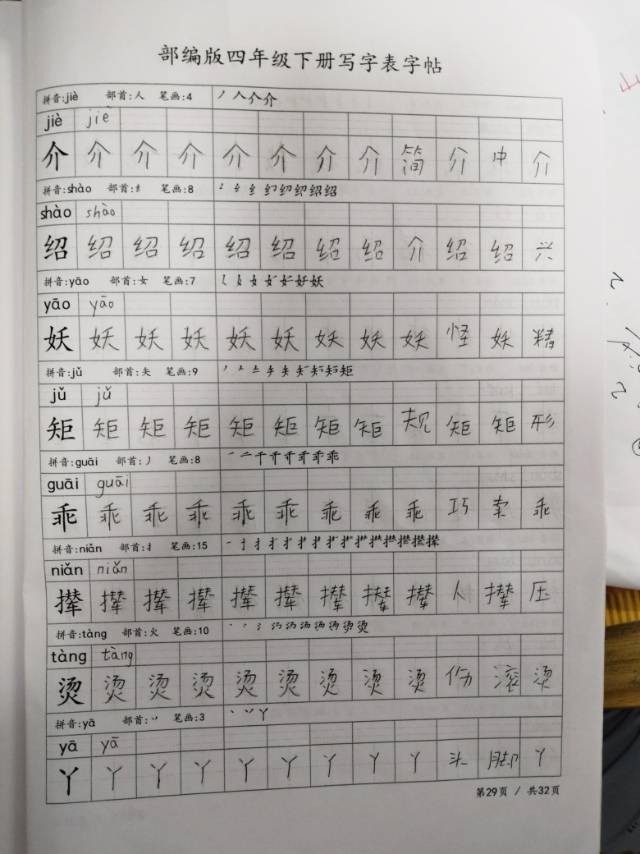 部编版四年级下册写字表字帖
拼音:jiè 部首:人 笔画:4
jiè jiè
介 介 介 介 介 介 介 介 简 介 中 介
拼音:shào 部首:纟 笔画:8
shào shào
绍 绍 绍 绍 绍 绍 绍 绍 介 绍 绍 兴
拼音:yāo 部首:女 笔画:7
yāo yāo
妖 妖 妖 妖 妖 妖 妖 妖 妖 怪 妖 精
拼音:jǔ 部首:矢 笔画:9
jǔ jǔ
矩 矩 矩 矩 矩 矩 矩 矩 规 矩 矩 形
拼音:guāi 部首:丿 笔画:8
guāi guāi
乖 乖 乖 乖 乖 乖 乖 乖 乖 巧 卖 乖
拼音:niǎn 部首:扌 笔画:15
niǎn niǎn
撵 撵 撵 撵 撵 撵 撵 撵 撵 人 撵 压
拼音:tàng 部首:火 笔画:10
tàng tàng
烫 烫 烫 烫 烫 烫 烫 烫 烫 伤 滚 烫
拼音:yā 部首:丷 笔画:3
yā yā
丫 丫 丫 丫 丫 丫 丫 丫 丫 头 脚 丫
第29页 / 共32页